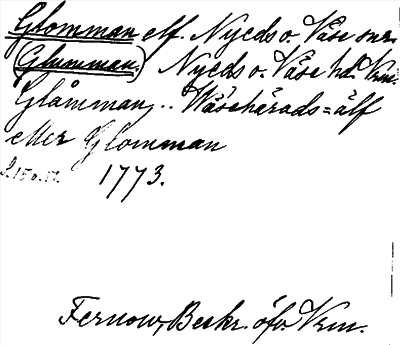 Glomman elf. Nyeds o. Väse snr.
(Glumman) Nyeds o. Väse hd. Vrm.
Glåmman, .. Wäsehärads=älf
eller Glomman
S. 15 o. 17. 1773.
Fernow, Beskr. öfv. Vrm.